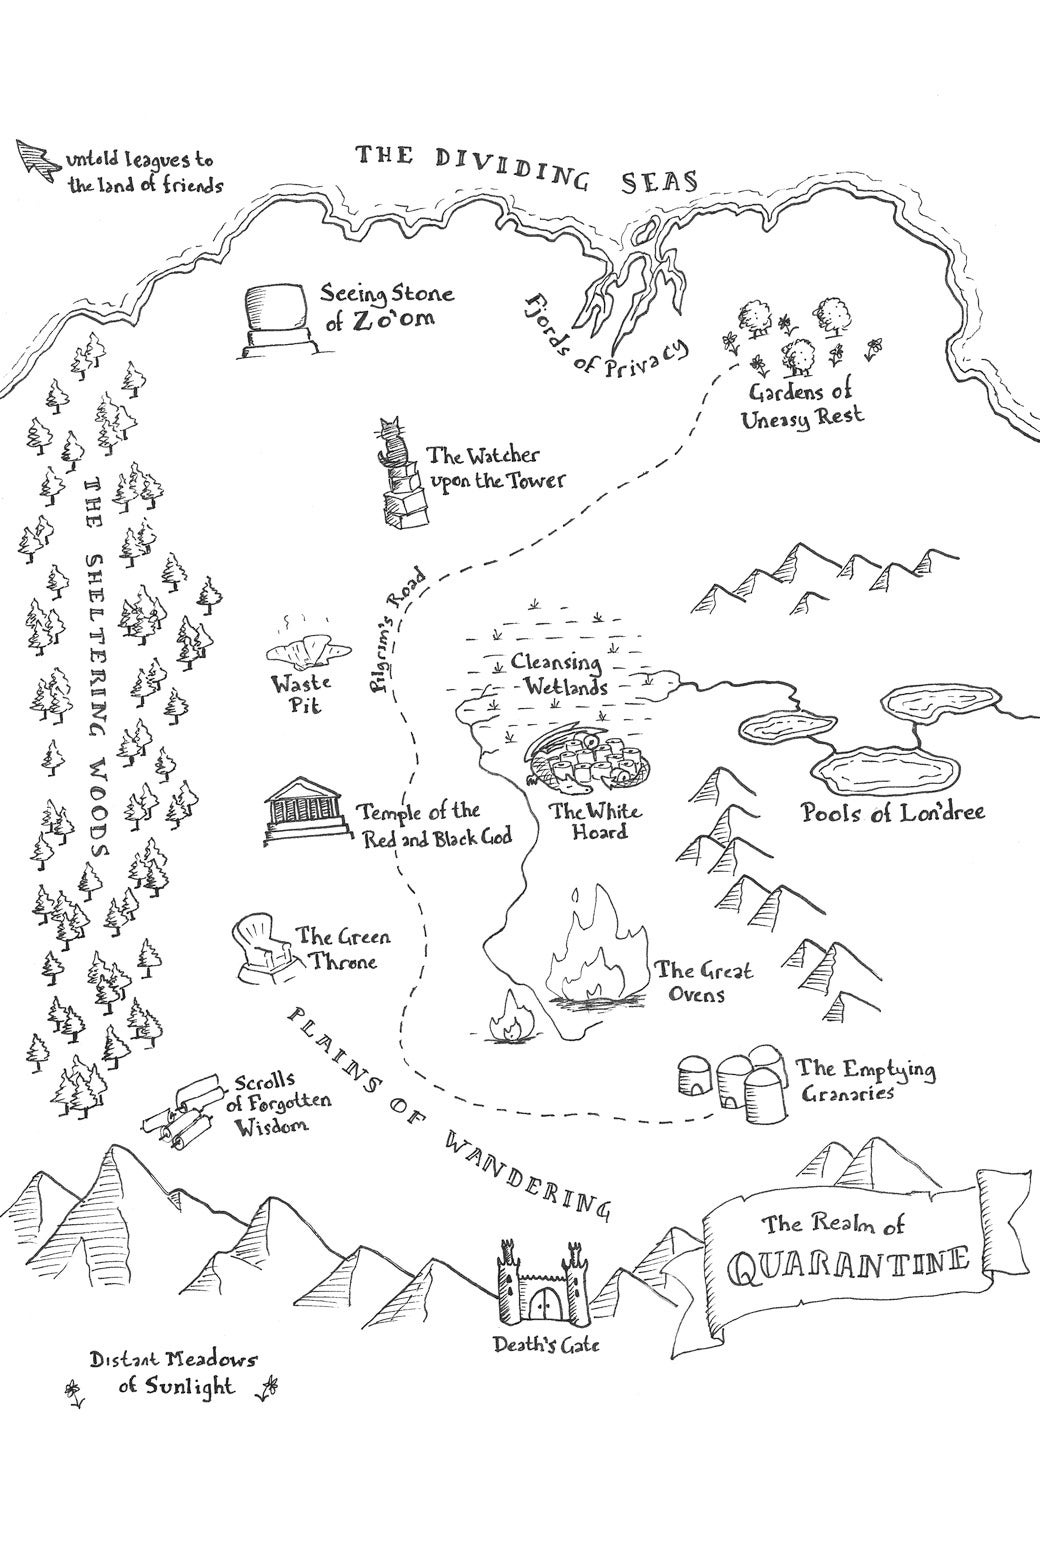 untold leagues to
the land of friends
THE DIVIDING SEAS
Seeing Stone
of Zo'om
Fjords of Privacy
Gardens of
Uneasy Rest
The Watcher
upon the Tower
THE SHELTERING WOODS
Pilgrim's Road
Waste
Pit
Cleansing
Wetlands
Temple of the
Red and Black God
The White
Hoard
Pools of Lon'dree
The Green
Throne
The Great
Ovens
PLAINS OF WANDERING
Scrolls
of Forgotten
Wisdom
The Emptying
Granaries
The Realm of
QUARANTINE
Death's Gate
Distant Meadows
of Sunlight